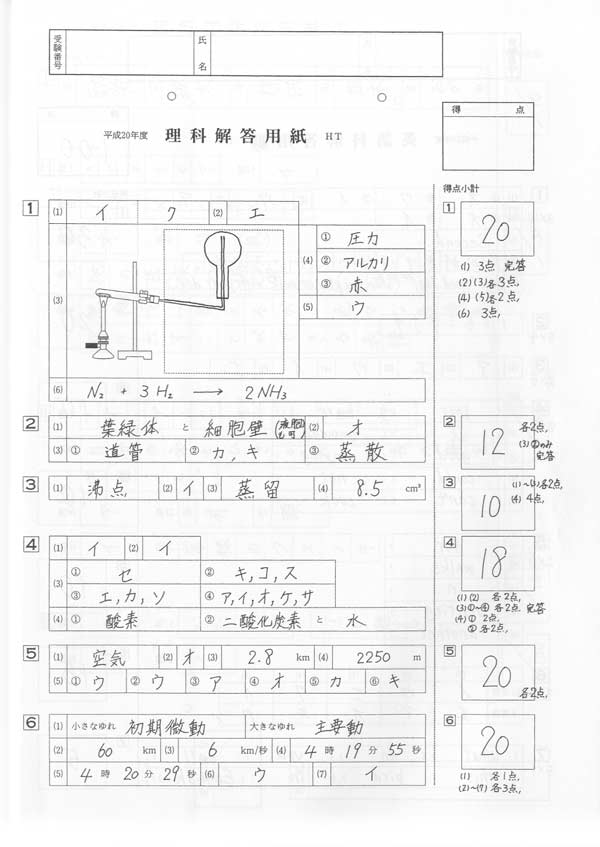 受験番号
氏名
平成20年度 理科解答用紙 HT
得 点
得点小計
1 (1) イ ク (2) エ
(3)
(4) ① 圧力
② アルカリ
③ 赤
(5) ウ
(6) N₂ + 3H₂ → 2NH₃
1
20
(1) 3点 完答
(2)(3)各3点,
(4)(5)各2点,
(6) 3点,
2 (1) 葉緑体 と 細胞壁 (液胞も可) (2) オ
(3) ① 道管 ② カ, キ ③ 蒸散
2
12
各2点,
(3)②のみ
完答
3 (1) 沸点 (2) イ (3) 蒸留 (4) 8.5 cm³
3
10
(1)~(3)各2点,
(4) 4点,
4 (1) イ (2) イ
(3) ① セ ② キ, コ, ス
③ エ, カ, ソ ④ ア, イ, オ, ケ, サ
(4) ① 酸素 ② 二酸化炭素 と 水
4
18
(1)(2) 各2点,
(3)①~④ 各2点 完答
(4)① 2点,
② 各2点,
5 (1) 空気 (2) オ (3) 2.8 km (4) 2250 m
(5) ① ウ ② ウ ③ ア ④ オ ⑤ カ ⑥ キ
5
20
各2点,
6 (1) 小さなゆれ 初期微動 大きなゆれ 主要動
(2) 60 km (3) 6 km/秒 (4) 4 時 19 分 55 秒
(5) 4 時 20 分 29 秒 (6) ウ (7) イ
6
20
(1) 各1点,
(2)~(7) 各3点,